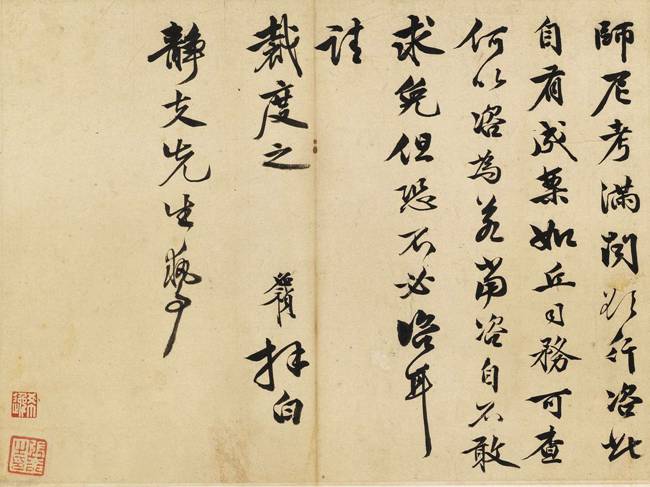 師尼考滿聞欲行咨此
自有成案如丘司務可查
何以咨為若當咨自不敢
求免但恐不必咨耳
請
裁度之
拜白
靜之先生執事